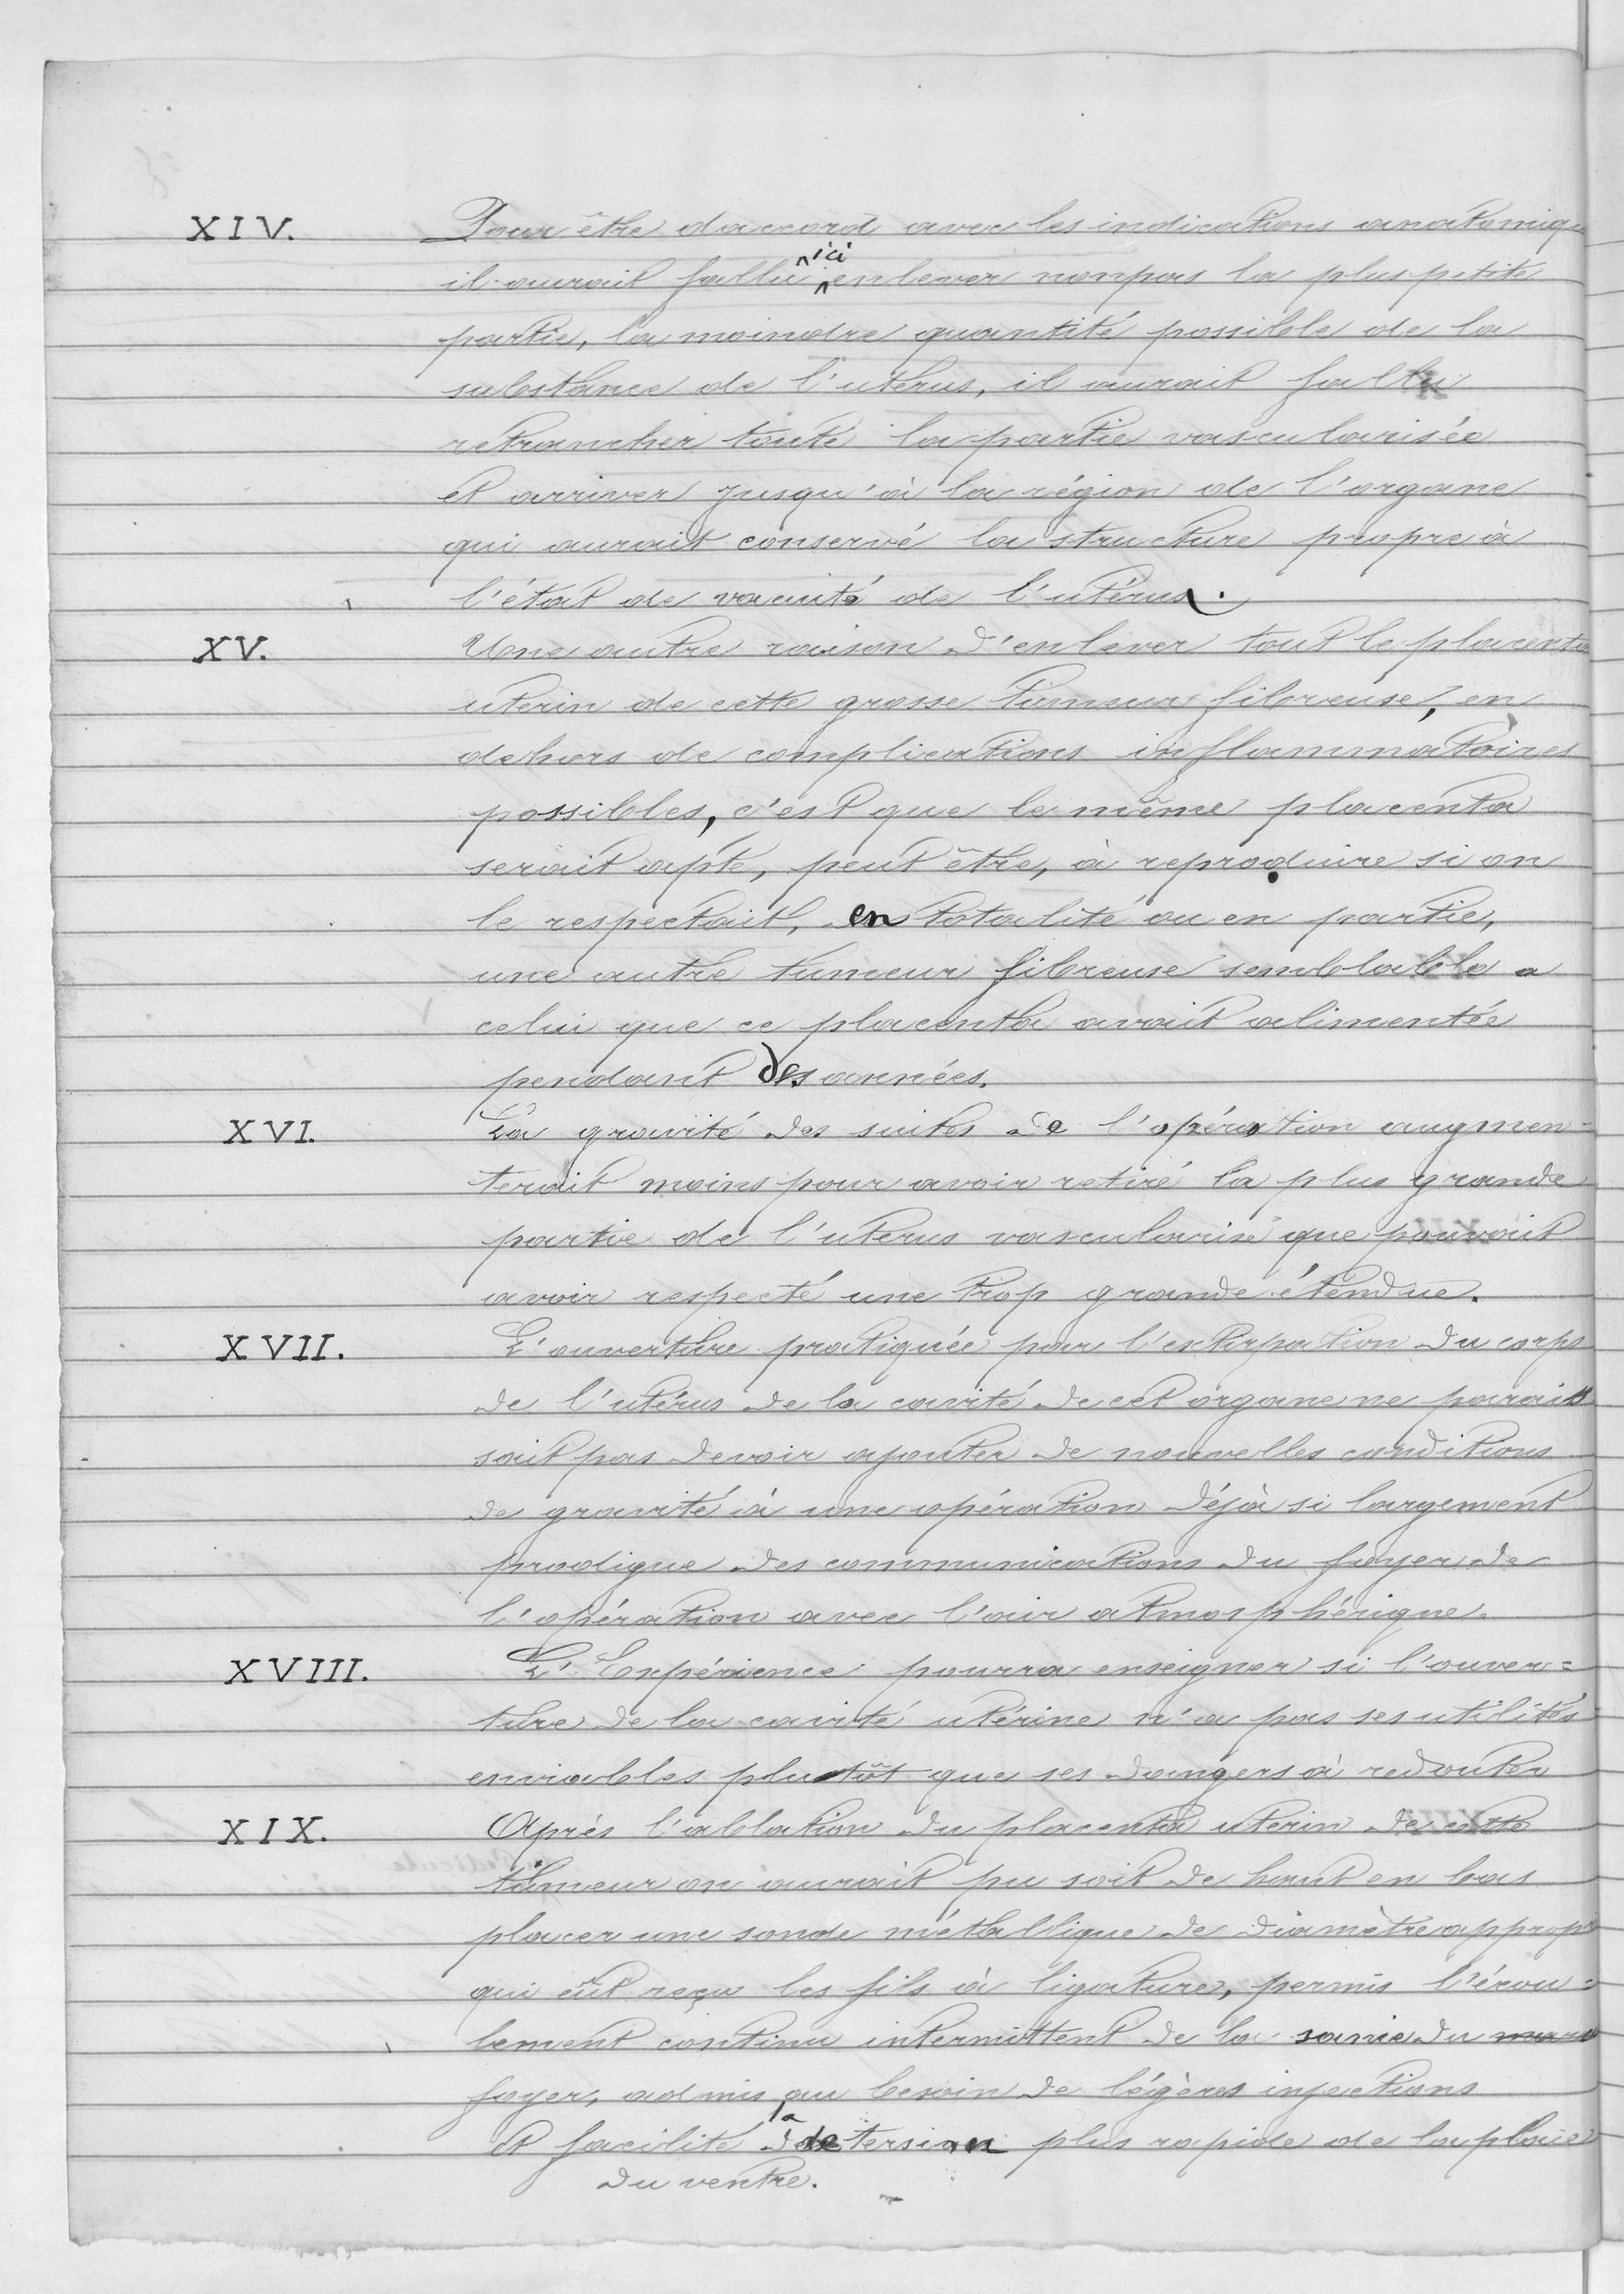 XIV. Pour être daccord avec les indications anatomiqu
ici
il aurait fallu enlever non pas la plus petite
partie, la moindre quantité possible de la
substance de l'utérus, il aurait fallu
retrancher toute la partie vascularisée
et arriver jusqu'à la région de l'organe
qui aurait conservé la structure propre à
l'état de vacuité de l'utérus.
XV. Une autre raison d'enlever tout le placenta
uterin de cette grosse tumeur fibreuse, en
dehors de complications inflammatoires
possibles, c'est que le même placenta
serait apte, peut être, à reproduire si on
le respectait, en totalité ou en partie,
une autre tumeur fibreuse semblable a
celui que ce placenta avait alimentée
pendant des années.
XVI. La gravité des suites de l'opération augmen-
terait moins pour avoir retiré la plus grande
partie de l'uterus vascularisé que pouvait
avoir respecté une trop grande étendue.
XVII. L'ouverture pratiquée pour l'extirpation du corps
de l'utérus de la cavité de cet organe ne parais
sait pas devoir ajouter de nouvelles conditions
de gravité à une opération déjà si largement
prodigue des communications du foyer de
l'opération avec l'air atmosphérique.
XVIII. L'Expérience pourra enseigner si l'ouver=
ture de la cavité utérine n'a pas ses utilités
enviables plutôt que ses dangers à redouter
XIX. Après l'ablation du placenta utérin de cette
tumeur on aurait pu soit de haut en bas
placer une sonde métallique de diamètre approp
qui eût reçu les fils à ligature, permis l'écou=
lement continu intermittent de la sanie du
foyer, admis au besoin de légères injections
et facilité la detersion plus rapide de la plaie
du ventre.